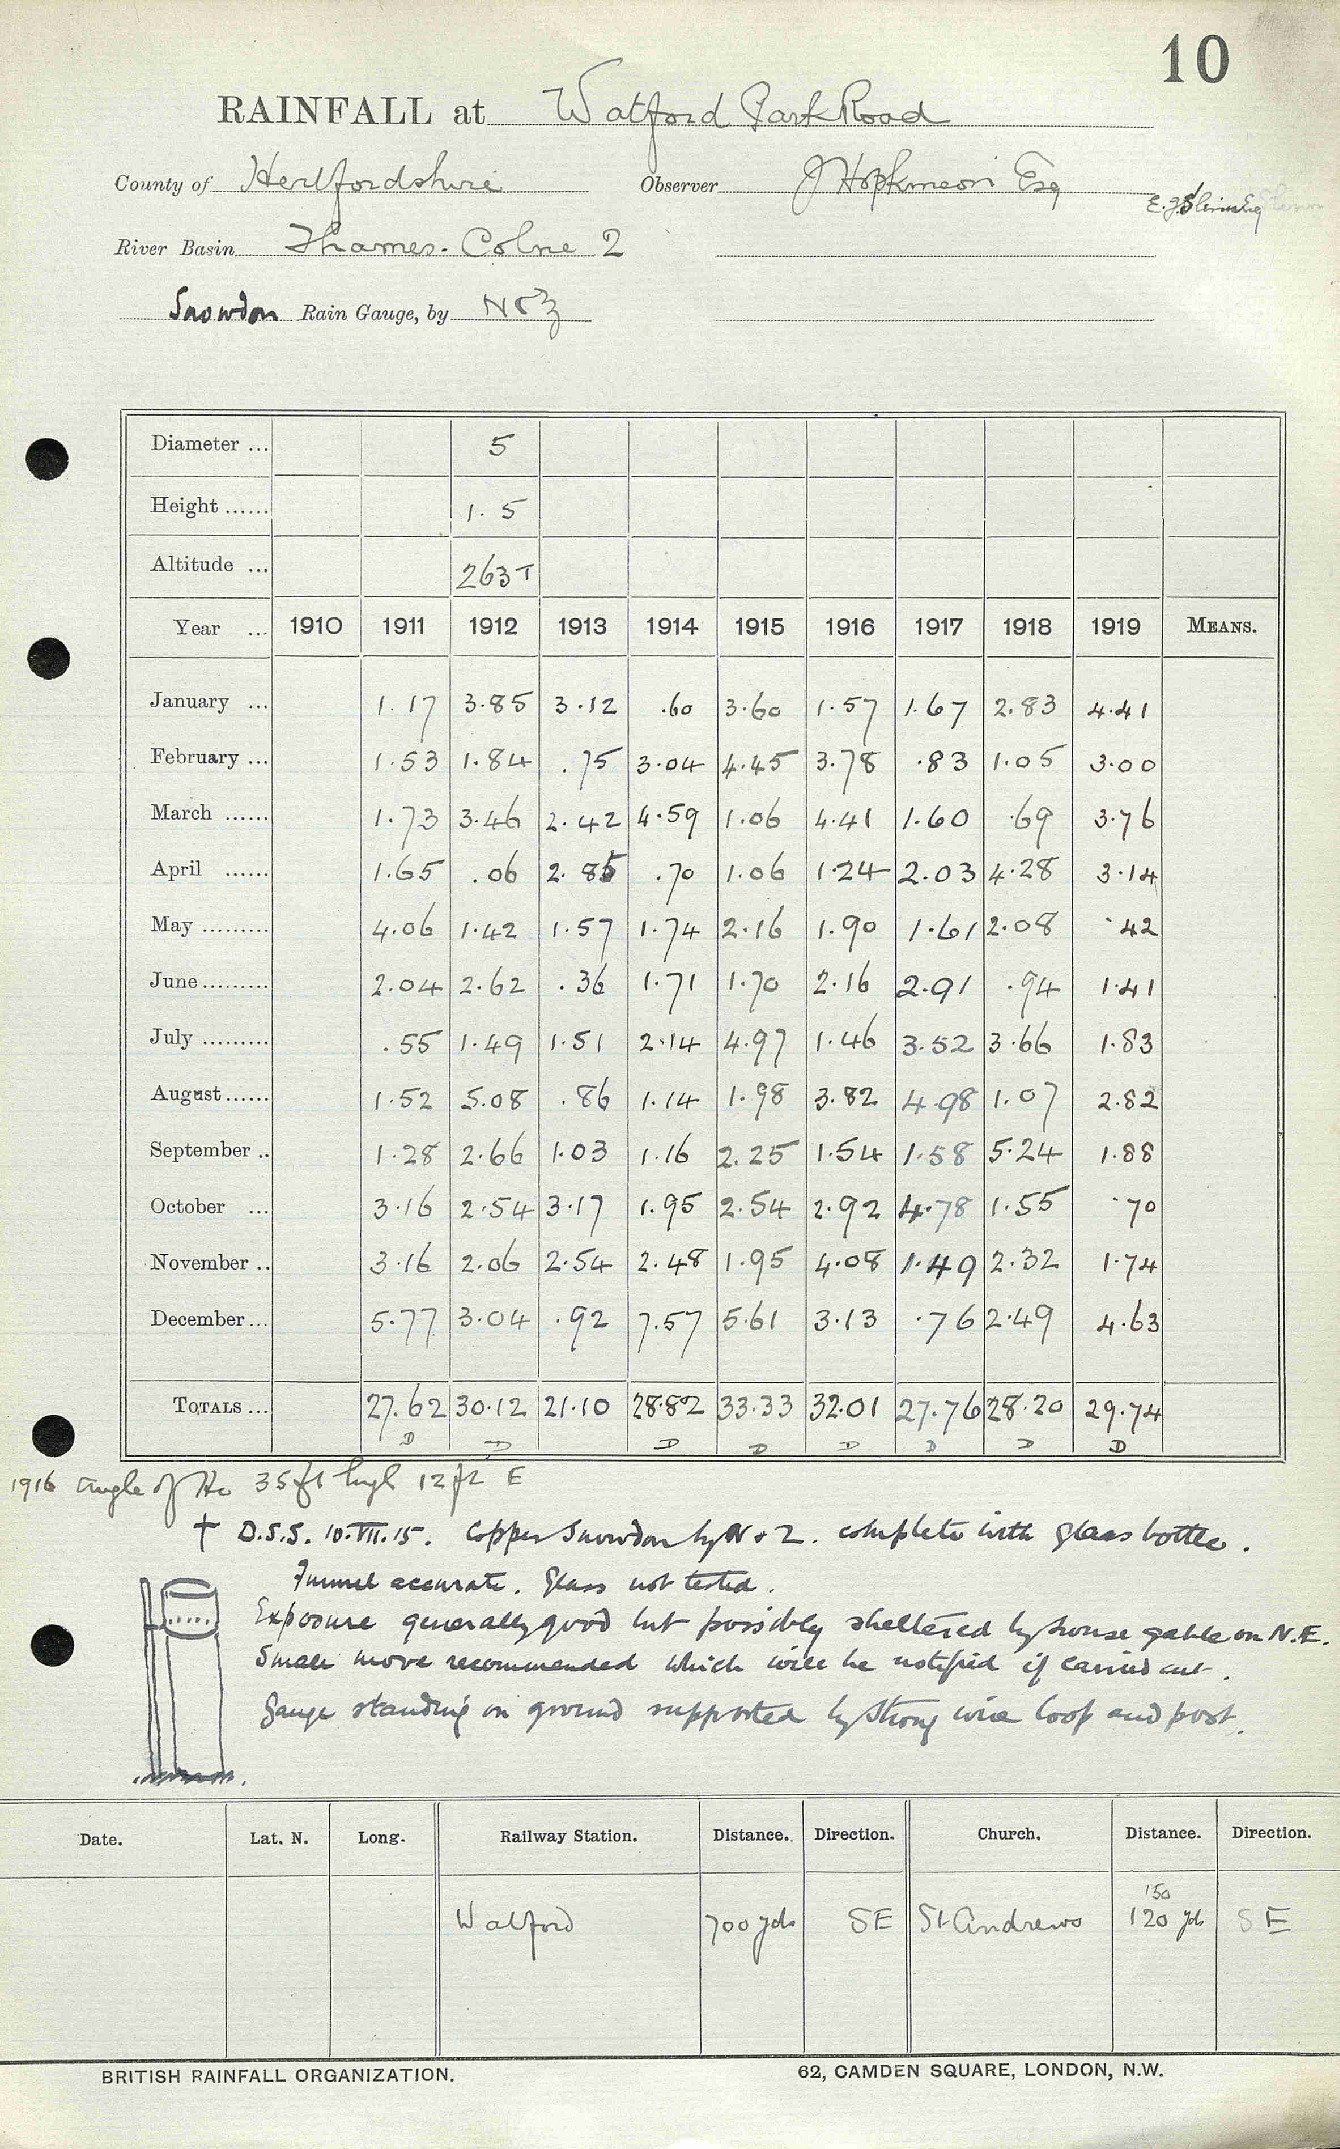 10
RAINFALL at Watford Park Road
County of Hertfordshire Observer J Hopkinson Esq
River Basin Thames. Colne 2
Snowdon Rain Gauge, by N & Z
Diameter ... 5
Height ...... 1.5
Altitude ... 263 T
Year ... 1910 1911 1912 1913 1914 1915 1916 1917 1918 1919 MEANS.
January ... 1.17 3.85 3.12 .60 3.60 1.57 1.67 2.83 4.41
February ... 1.53 1.84 .75 3.04 4.45 3.78 .83 1.05 3.00
March ...... 1.73 3.46 2.42 4.59 1.06 4.41 1.60 .69 3.76
April ...... 1.65 .06 2.85 .70 1.06 1.24 2.03 4.28 3.14
May ......... 4.06 1.42 1.57 1.74 2.16 1.90 1.61 2.08 .42
June ......... 2.04 2.62 .36 1.71 1.70 2.16 2.91 .94 1.41
July ......... .55 1.49 1.51 2.14 4.97 1.46 3.52 3.66 1.83
August ...... 1.52 5.08 .86 1.14 1.98 3.82 4.98 1.07 2.82
September .. 1.28 2.66 1.03 1.16 2.25 1.54 1.58 5.24 1.88
October ... 3.16 2.54 3.17 1.95 2.54 2.92 4.78 1.55 .70
November .. 3.16 2.06 2.54 2.48 1.95 4.08 1.49 2.32 1.74
December ... 5.77 3.04 .92 7.57 5.61 3.13 .76 2.49 4.63
TOTALS ... 27.62 30.12 21.10 28.82 33.33 32.01 27.76 28.20 29.74
D D D D D D D D
1916 Angle of Ho 35 ft high 12 ft E
† D.S.S. 10.VII.15. Copper Snowdon by N & Z. complete with glass bottle.
Funnel accurate. Glass not tested.
Exposure generally good but possibly sheltered by house gable on N.E.
Small move recommended which will be notified if carried out.
Gauge standing on ground supported by strong wire loop and post.
Date. Lat. N. Long. Railway Station. Distance. Direction. Church. Distance. Direction.
150
Watford 700 yds SE St Andrews 120 yds SE
BRITISH RAINFALL ORGANIZATION. 62, CAMDEN SQUARE, LONDON, N.W.